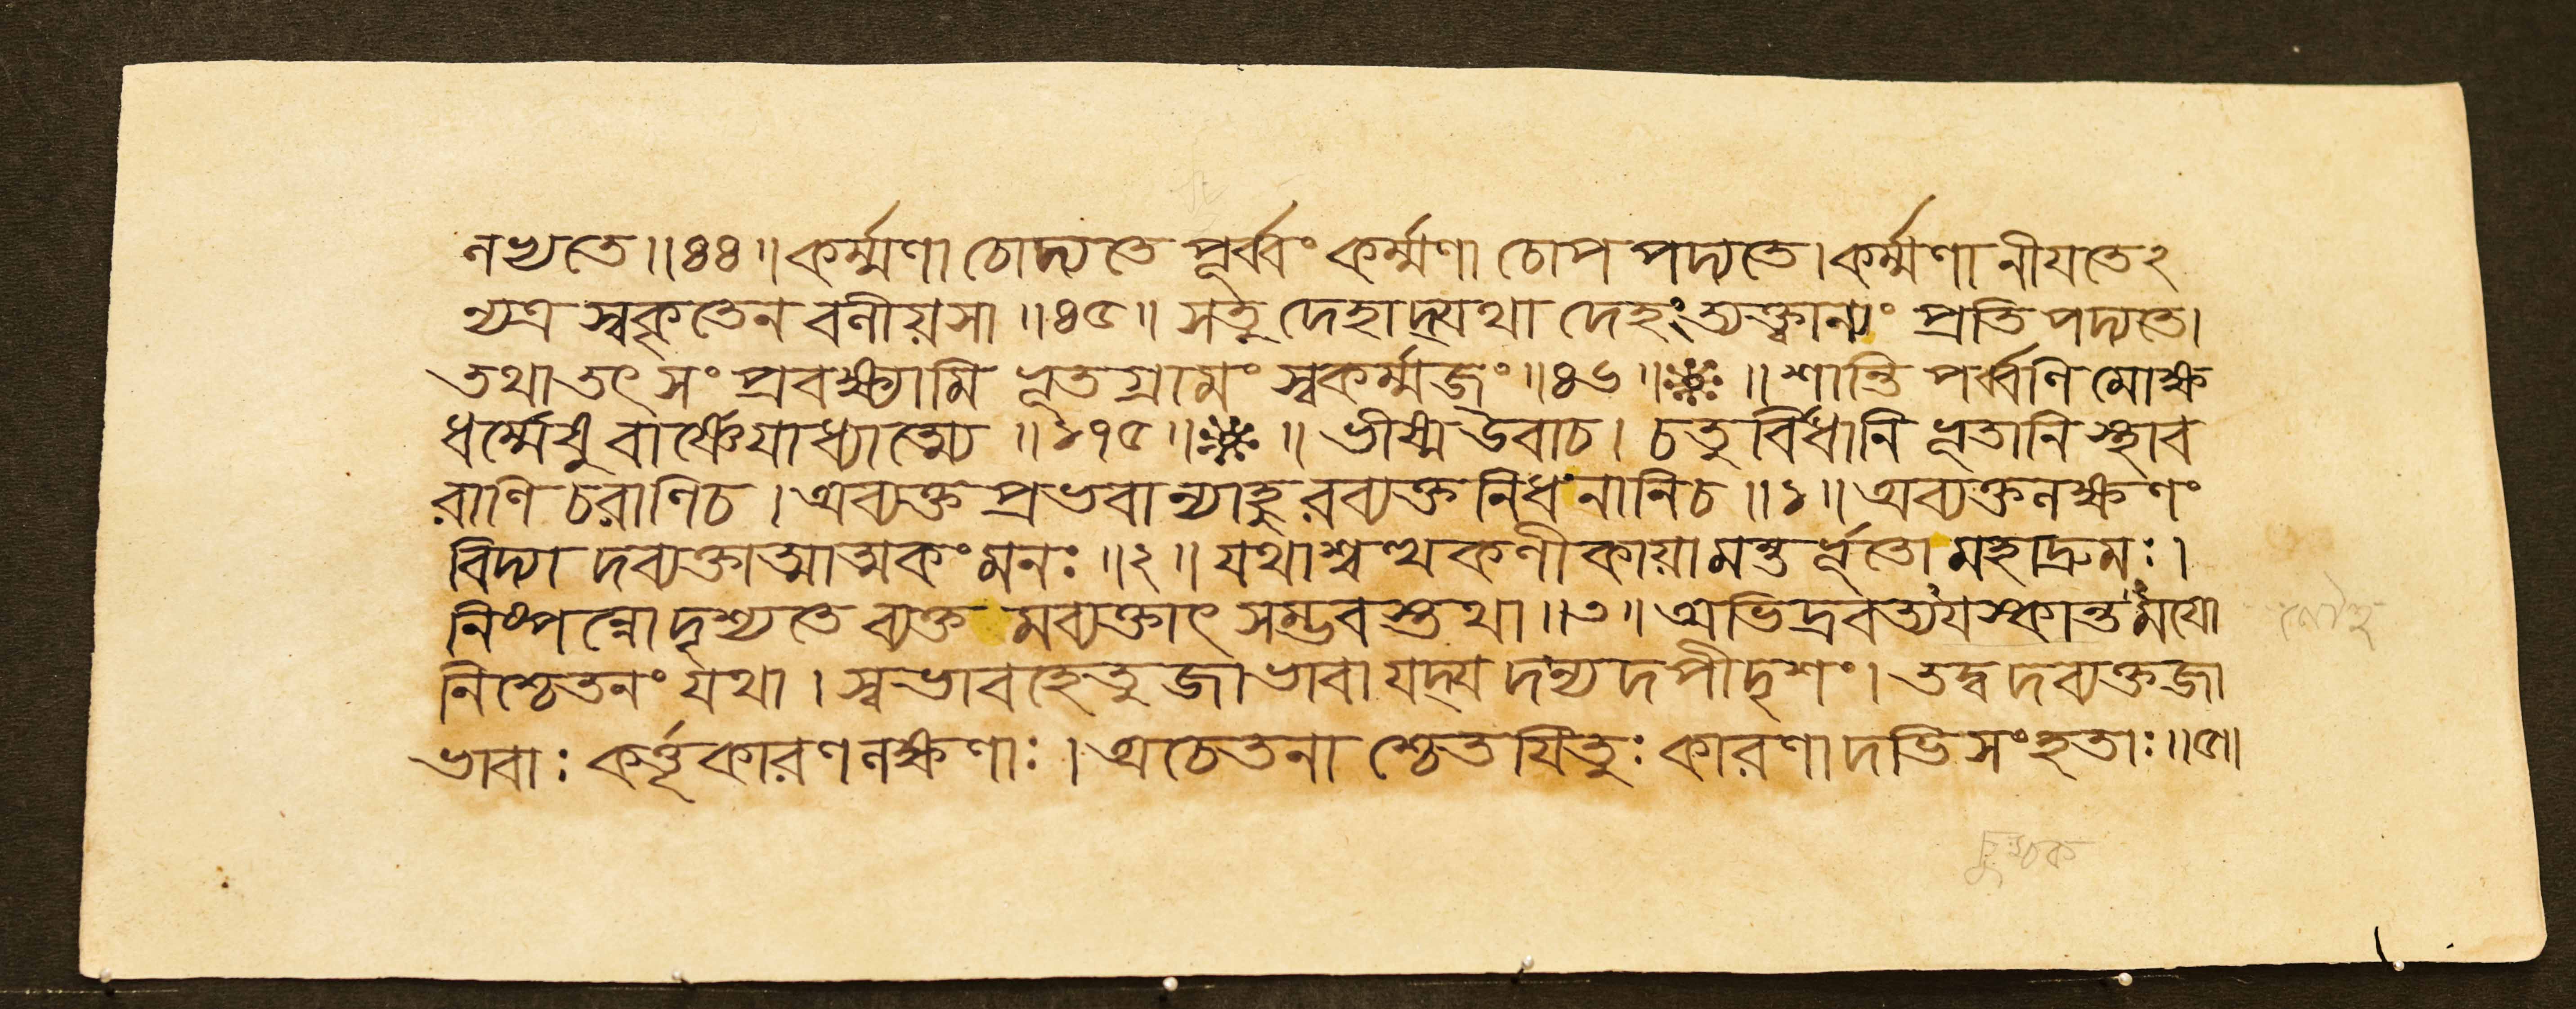 নখ্যতে॥৪৪॥কর্ম্মণা চোদ্যতে পূর্ব্বং কর্ম্মণা চোপপদ্যতে।কর্ম্মণা নীয়তেঽ
ন্যত্র স্বকৃতেন বলীয়সা॥৪৫॥ সতু দেহাদ্যথা দেহং ত্যক্ত্বান্যং প্রতিপদ্যতে।
তথা তৎ সংপ্রবক্ষ্যামি ভূতগ্রামং স্বকর্ম্মজং॥৪৬॥ ॥শান্তিপর্ব্বণি মোক্ষ
ধর্ম্মেষু বার্ষ্ণেয়াধ্যাত্ম্যে॥১৭৫॥ ॥ ভীষ্ম উবাচ। চতুর্ব্বিধানি ভূতানি স্থাব
রাণি চরাণি চ।অব্যক্তপ্রভবান্যাহুরব্যক্তনিধনানি চ॥১॥অব্যক্তলক্ষণং
বিদ্যাদব্যক্তাত্মাত্মকং মনঃ॥২॥যথাশ্বত্থকণীকায়ামন্তর্ভূতো মহাদ্রুমঃ।
নিষ্পন্নো দৃশ্যতে ব্যক্তমব্যক্তাৎ সম্ভবস্তথা॥৩॥অভিদ্রবত্যয়স্কান্তময়ো
নিশ্চেতনং যথা। স্বভাবহেতুজা ভাবা যদ্যদন্যদপীদৃশং। তদ্বদব্যক্তজা
ভাবাঃ কর্ত্তৃকারণলক্ষণাঃ।অচেতনাশ্চেতয়িতুঃ কারণাদভিসংহতাঃ॥৫॥
চুম্বক